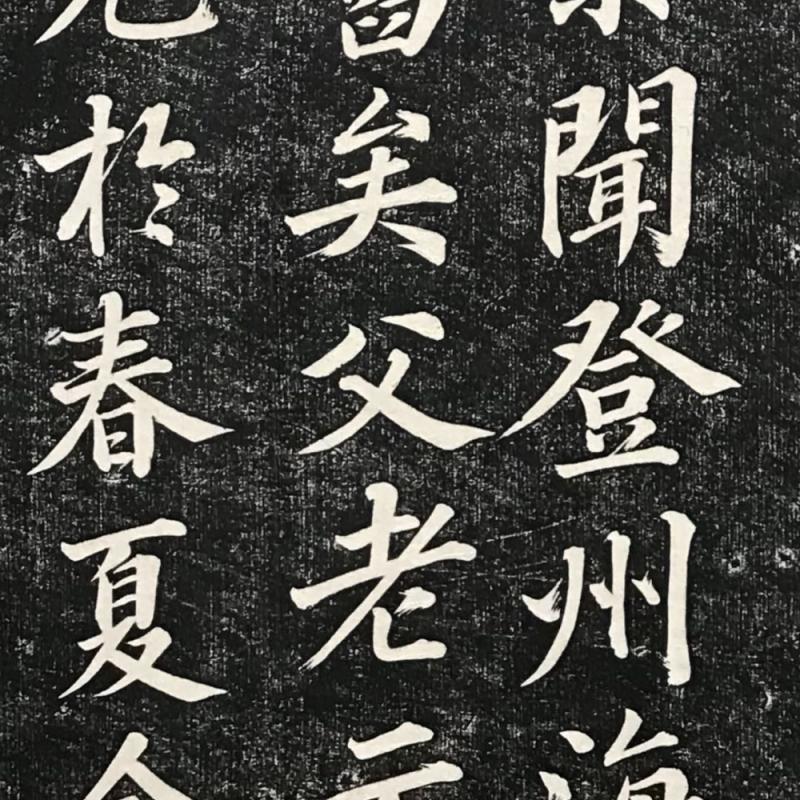 聞登州海
矣父老云
於春夏